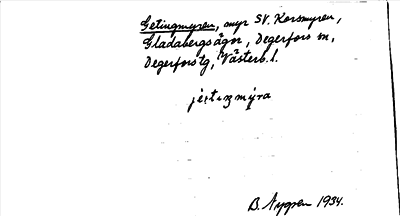 Getingmyren, myr SV. Korsmyren,
Gladabergs ägor, Degerfors sn,
Degerfors tg, Västerb. l.
jé̜i̯tɩŋmýra
B. Nygren 1934.